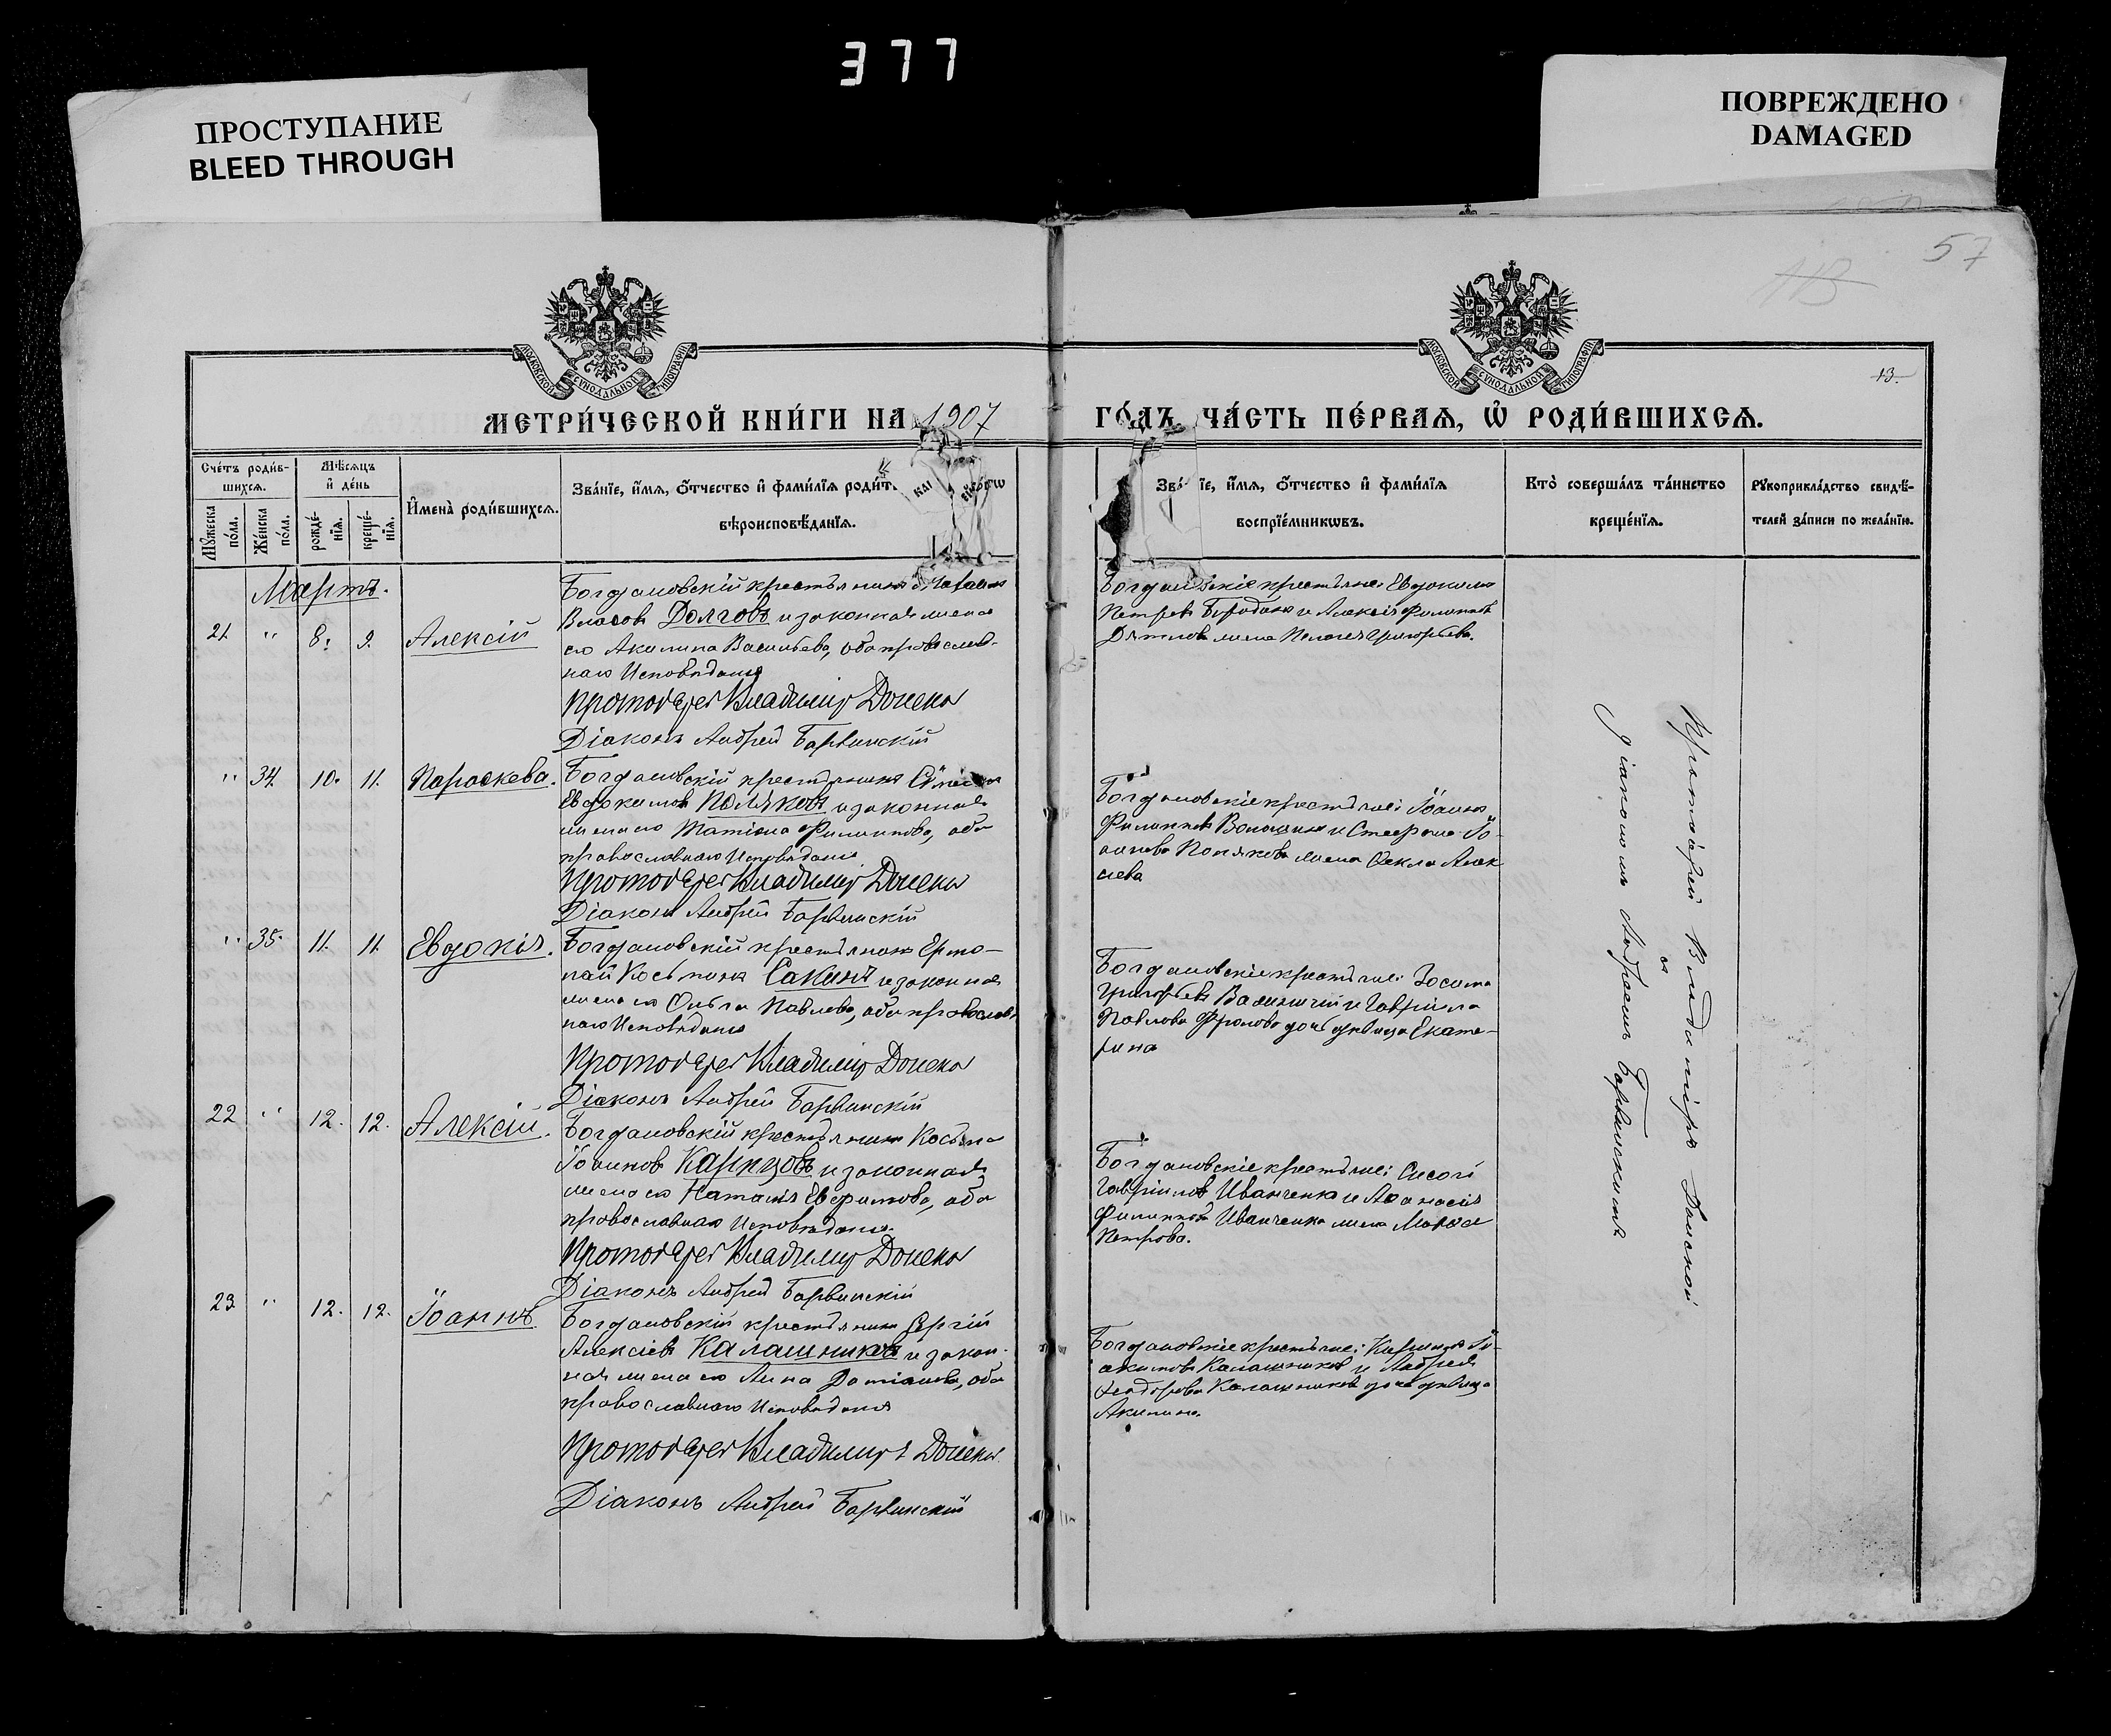 377
ПРОСТУПАНИЕ
BLEED THROUGH
ПОВРЕЖДЕНО
DAMAGED
57
13.
МОСКОВСКОЙ СѴНОДАЛЬНОЙ ТИПОГРАФІИ
МОСКОВСКОЙ СѴНОДАЛЬНОЙ ТИПОГРАФІИ
МЕТРИ́ЧЕСКОЙ КНИ́ГИ НА 1907
ГО́ДЪ, ЧА́СТЬ ПЕ́РВАЯ, Ѡ҆ РОДИ́ВШИХСЯ.
Сче́тъ роди́в-
шихся.
Мѣ́сяцъ
и҆ де́нь
Мꙋжеска по́ла.
Же́нска по́ла.
рожде́-
нїя.
креще́-
нїя.
И҆мена̀ роди́вшихся.
Зва́нїе, и҆́мя, ѻ҆́тчество и҆ фами́лїя роди́т
вѣроисповѣ́данїя.
Зва́нїе, и҆́мя, ѻ҆́тчество и҆ фами́лїя
воспрїе́мникѡвъ.
Кто̀ соверша́лъ та́инство
креще́нїя.
Рꙋкоприкла́дство свидѣ́-
телей за́писи по жела́нїю.
Мартъ.
21. " 8. 9. Алексій
Богдановскій крестьянинъ
Власовъ Долговъ и законная жена
его Акилина Васильева, оба православ-
наго Исповѣданія
Протоіерей Владиміръ Донской
Діаконъ Андрей Барвинскій
Богдановскіе крестьяне: Евдокимъ
Петровъ и Алексія Филиппова
Дятлова жена Пелагея Григорьева.
" 34. 10. 11. Параскева.
Богдановскій крестьянинъ
Евдокимовъ Поляковъ и законная
жена его Татіана Филиппова, оба
православнаго Исповѣданія
Протоіерей Владиміръ Донской
Діаконъ Андрей Барвинскій
Богдановскіе крестьяне: Іоаннъ
Филипповъ Волошинъ и Стефана Іо-
аннова Полякова жена Ѳекла Алек-
сіева
" 35. 11. 11. Евдокія.
Богдановскій крестьянинъ Ермо-
лай Косьминъ Сакинъ и законная
жена его Ольга Павлова, оба православ-
наго Исповѣданія
Протоіерей Владиміръ Донской
Діаконъ Андрей Барвинскій
Богдановскіе крестьяне: Зосима
Григорьевъ и Гавріила
Павлова Фролова дочь дѣвица Екате-
рина
22 " 12. 12. Алексій.
Богдановскій крестьянинъ Косьма
Іоанновъ и законная
жена его Наталія Евфимова, оба
православнаго Исповѣданія.
Протоіерей Владиміръ Донской
Діаконъ Андрей Барвинскій
Богдановскіе крестьяне: Сисой
Гавріиловъ Иванченко и Аѳанасія
Филиппова Иванченко жена Марѳа
Петрова.
23. " 12. 12. Іоаннъ
Богдановскій крестьянинъ Сергій
Алексіевъ Калашниковъ и закон-
ная жена его Анна Даміанова, оба
православнаго Исповѣданія
Протоіерей Владиміръ Донской
Діаконъ Андрей Барвинскій
Богдановскіе крестьяне: Іо-
акимовъ Калашниковъ и Андрея
Ѳеодорова Калашникова дочь дѣвица
Акилина.
Протоіерей Владиміръ Донской
съ
діакономъ Андреемъ Барвинскимъ